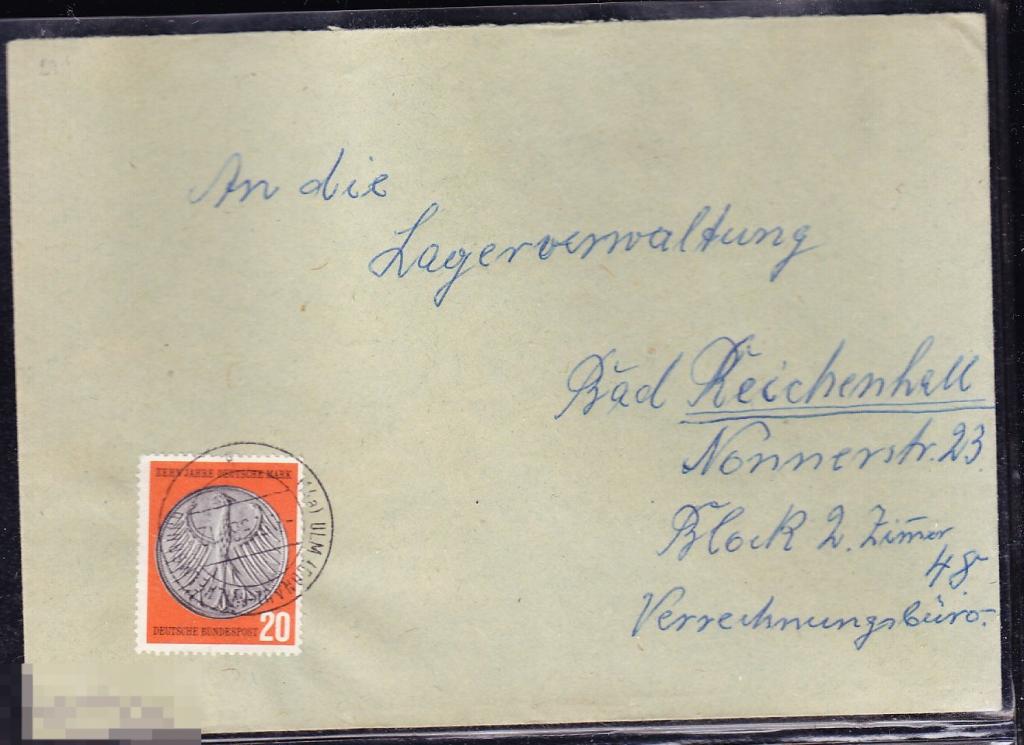 An die
Lagerverwaltung
Bad Reichenhall
Nonnerstr. 23
Block 2. Zim̄er
48
Verrechnungsbüro.
ZEHN JAHRE DEUTSCHE MARK
DEUTSCHE BUNDESPOST 20
(14a) ULM (DONAU)